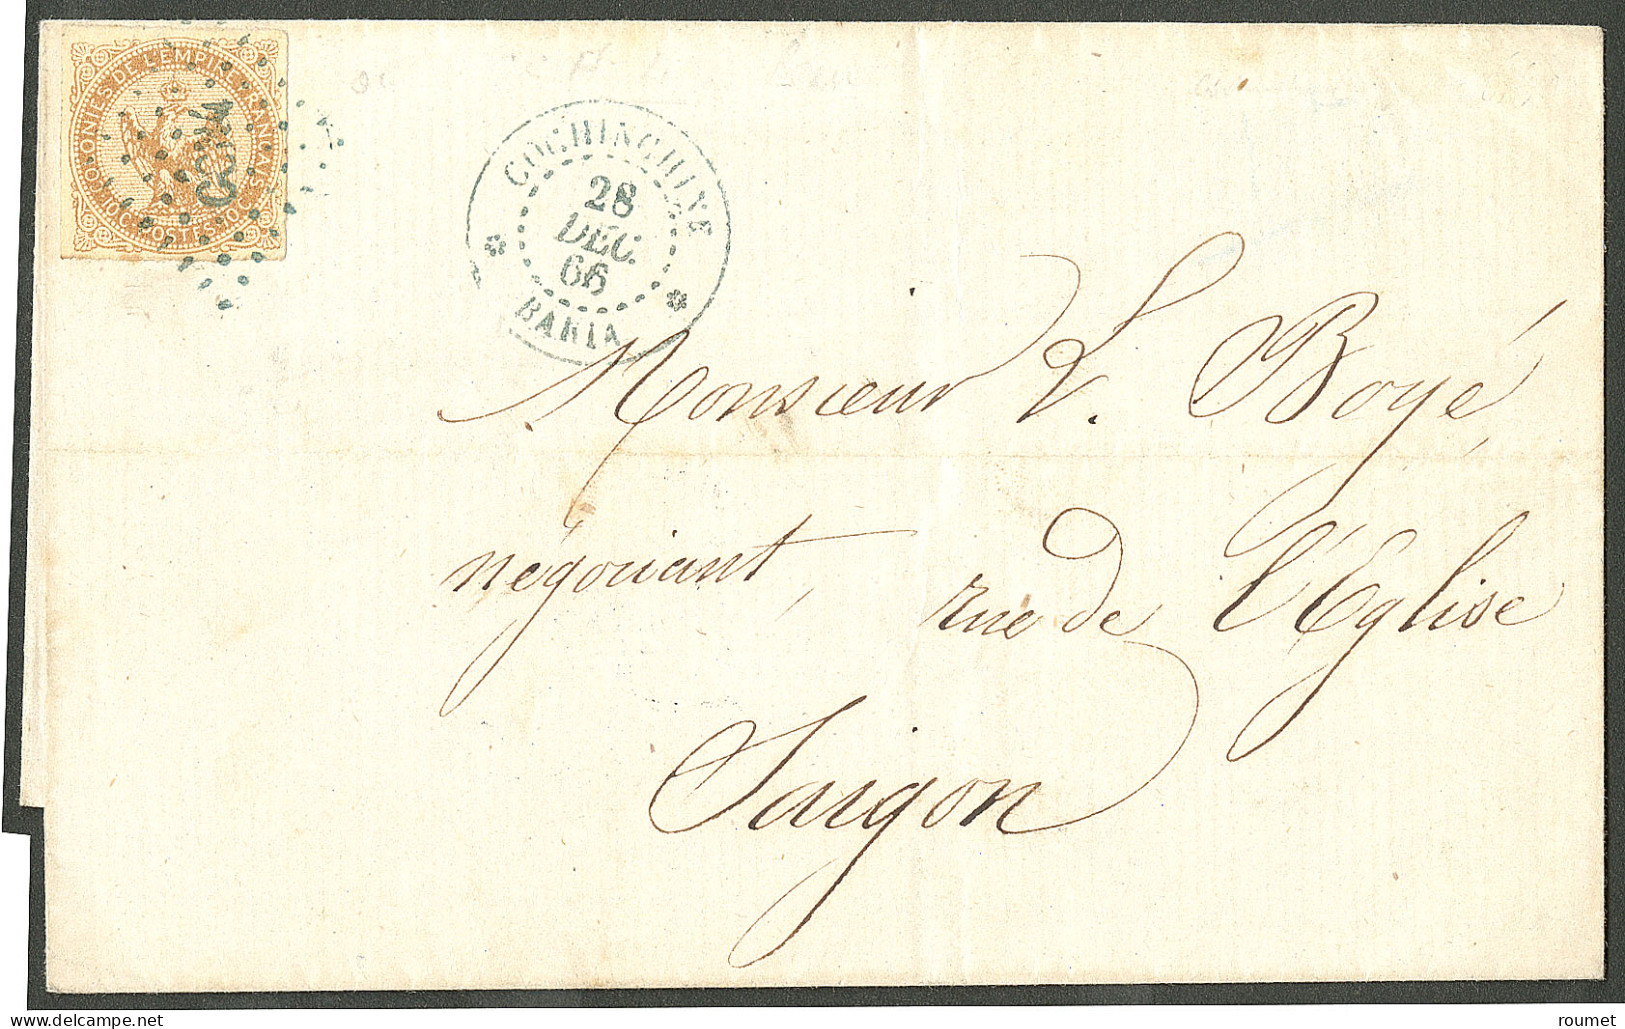 COLONIES DE L'EMPIRE FRANÇAIS
10 C. POSTES 10 C.
CCN1
COCHINCHINE
28
DEC.
66
BARIA
Monsieur L. Boyé,
négociant, rue de l'Eglise
Saigon
delcampe.net
roumet